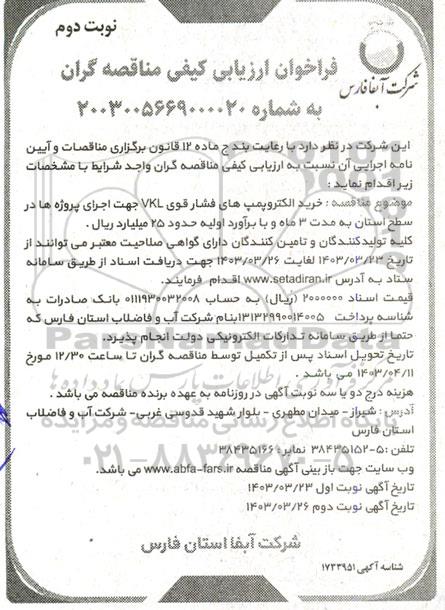 نوبت دوم
شرکت آبفا فارس
فراخوان ارزیابی کیفی مناقصه گران
به شماره ۲۰۰۳۰۰۵۶۶۹۰۰۰۰۲۰
این شرکت در نظر دارد با رعایت بند ج ماده ۱۲ قانون برگزاری مناقصات و آیین
نامه اجرایی آن نسبت به ارزیابی کیفی مناقصه گران واجد شرایط با مشخصات
زیر اقدام نماید :
موضوع مناقصه : خرید الکتروپمپ های فشار قوی VKL جهت اجرای پروژه ها در
سطح استان به مدت ۳ ماه و با برآورد اولیه حدود ۲۵ میلیارد ریال .
کلیه تولیدکنندگان و تامین کنندگان دارای گواهی صلاحیت معتبر می توانند از
تاریخ ۱۴۰۳/۰۳/۲۳ لغایت ۱۴۰۳/۰۳/۲۶ جهت دریافت اسناد از طریق سامانه
ستاد به آدرس www.setadiran.ir اقدام فرمایند.
قیمت اسناد ۲۰۰۰۰۰۰ (ریال) به حساب ۰۱۱۱۹۳۰۰۳۲۰۰۸ بانک صادرات به
شناسه پرداخت ۱۳۱۳۲۹۹۰۰۱۴۰۰۵ بنام شرکت آب و فاضلاب استان فارس که
حتما از طریق سامانه تدارکات الکترونیکی دولت انجام پذیرد.
تاریخ تحویل اسناد پس از تکمیل توسط مناقصه گران تا ساعت ۱۲/۳۰ مورخ
۱۴۰۳/۰۴/۱۱ می باشد .
هزینه درج دو یا سه نوبت آگهی در روزنامه به عهده برنده مناقصه می باشد .
آدرس : شیراز - میدان مطهری - بلوار شهید قدوسی غربی- شرکت آب و فاضلاب
استان فارس
تلفن :۵-۳۸۴۳۵۱۵۲ نمابر: ۳۸۴۳۵۱۶۶
وب سایت جهت باز بینی آگهی مناقصه www.abfa-fars.ir می باشد.
تاریخ آگهی نوبت اول ۱۴۰۳/۰۳/۲۳
تاریخ آگهی نوبت دوم ۱۴۰۳/۰۳/۲۶
شرکت آبفا استان فارس
شناسه آگهی ۱۷۳۳۹۵۱